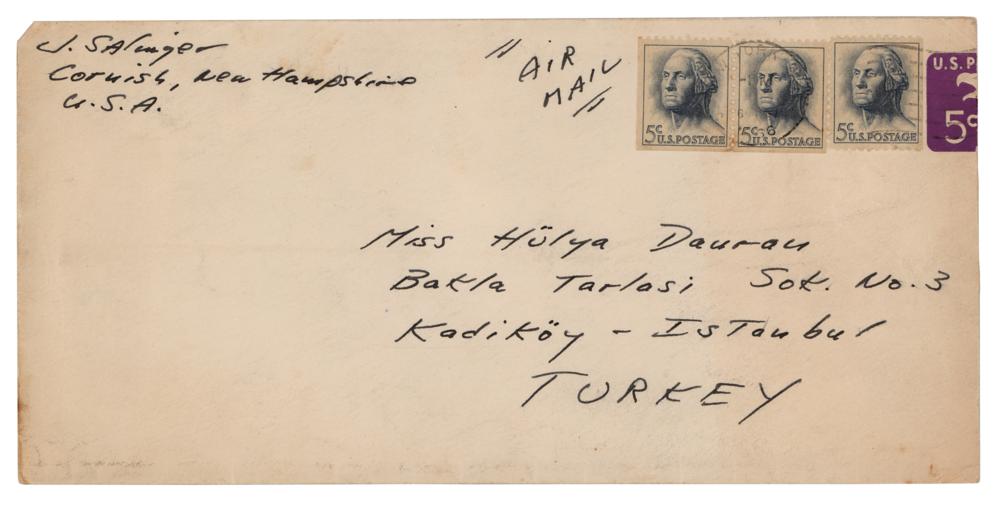 J. Salinger
Cornish, New Hampshire
U.S.A.
" AIR
MAIL "
5c U.S. POSTAGE
5c U.S. POSTAGE
5c U.S. POSTAGE
U.S. P
5c
Miss Hülya Dauran
Bakla Tarlasi Sok. No. 3
Kadiköy - Istanbul
TURKEY